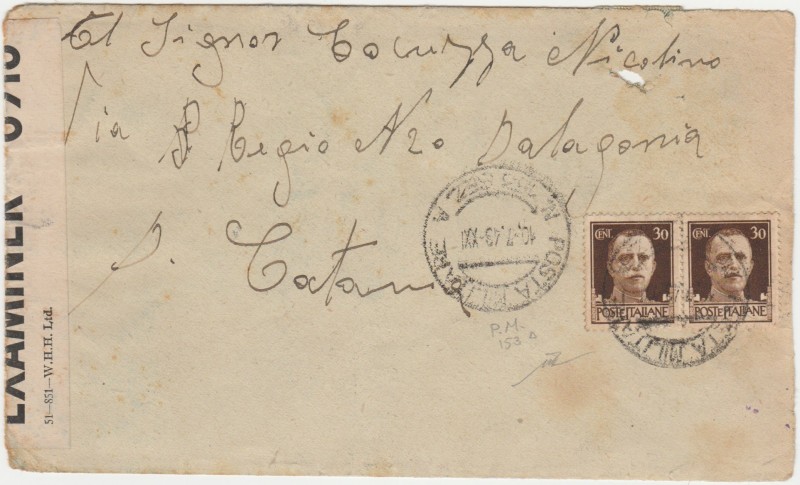 Al Signor Cocuzza Nicolino
Via P Regio N20 Palagonia
P. Catania
N. 153 SEZ A
10.7.43-XXI
POSTA MILITARE
CENT. 30
POSTE ITALIANE
CENT. 30
POSTE ITALIANE
POSTA MILIT
P.M.
153 A
EXAMINER
51—851—W.H.H. Ltd.